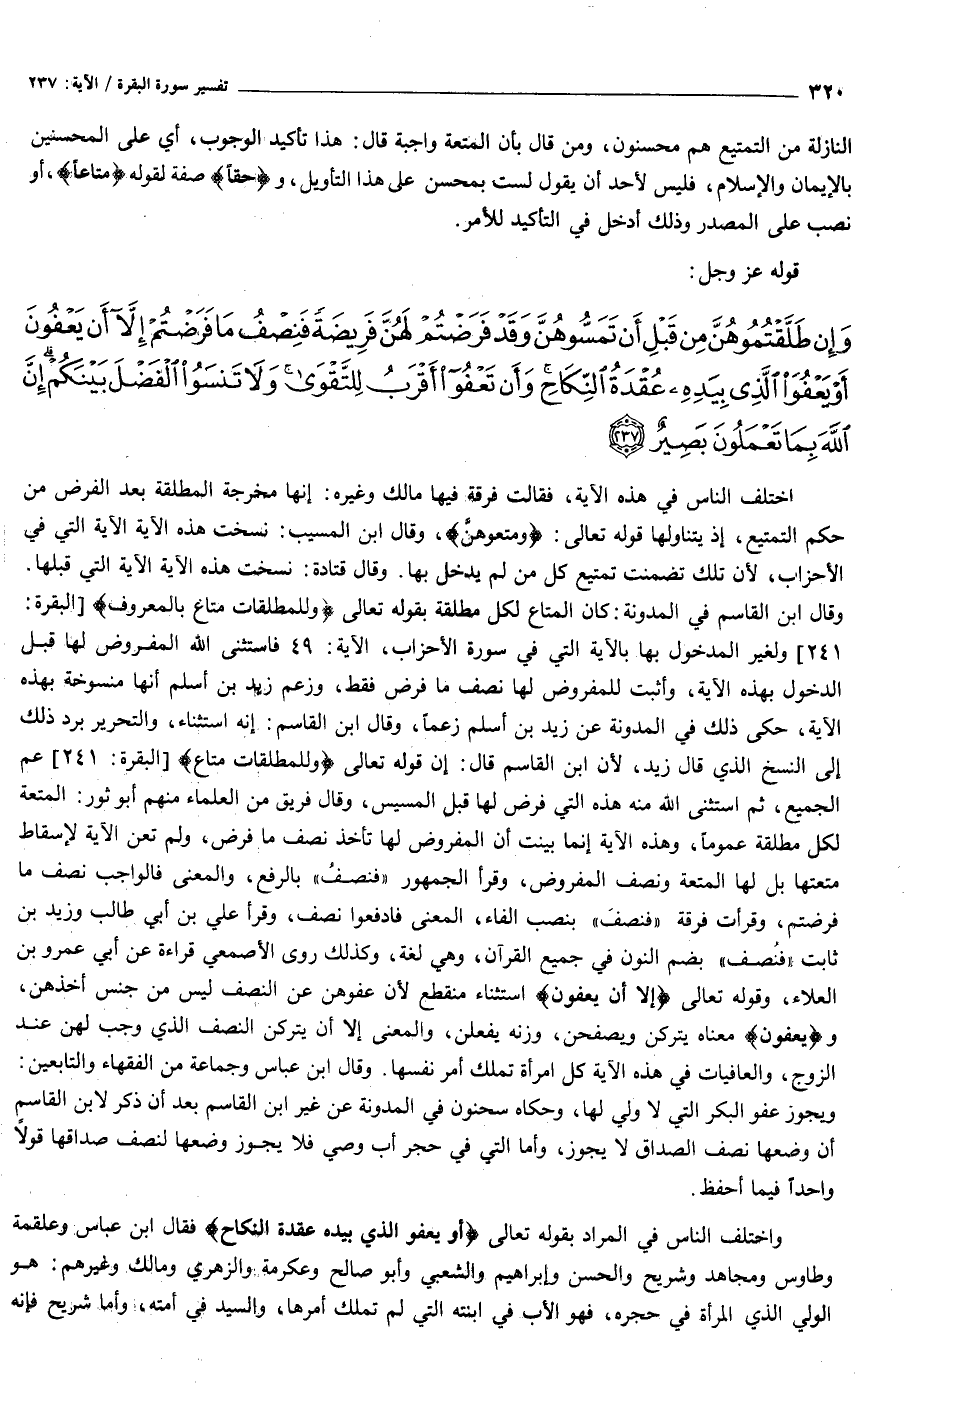 ٣٢٠ تفسير سورة البقرة / الآية: ٢٣٧
النازلة من التمتيع هم محسنون، ومن قال بأن المتعة واجبة قال: هذا تأكيد الوجوب، أي على المحسنين
بالإيمان والإسلام، فليس لأحد أن يقول لست بمحسن على هذا التأويل، و ﴿حقاً﴾ صفة لقوله ﴿متاعاً﴾، أو
نصب على المصدر وذلك أدخل في التأكيد للأمر.
قوله عز وجل:
وَإِن طَلَّقْتُمُوهُنَّ مِن قَبْلِ أَن تَمَسُّوهُنَّ وَقَدْ فَرَضْتُمْ لَهُنَّ فَرِيضَةً فَنِصْفُ مَا فَرَضْتُمْ إِلَّآ أَن يَعْفُونَ
أَوْ يَعْفُوَا۟ ٱلَّذِى بِيَدِهِۦ عُقْدَةُ ٱلنِّكَاحِ ۚ وَأَن تَعْفُوٓا۟ أَقْرَبُ لِلتَّقْوَىٰ ۚ وَلَا تَنسَوُا۟ ٱلْفَضْلَ بَيْنَكُمْ ۚ إِنَّ
ٱللَّهَ بِمَا تَعْمَلُونَ بَصِيرٌ ٢٣٧
اختلف الناس في هذه الآية، فقالت فرقة فيها مالك وغيره: إنها مخرجة المطلقة بعد الفرض من
حكم التمتيع، إذ يتناولها قوله تعالى: ﴿ومتعوهنَّ﴾، وقال ابن المسيب: نسخت هذه الآية الآية التي في
الأحزاب، لأن تلك تضمنت تمتيع كل من لم يدخل بها. وقال قتادة: نسخت هذه الآية الآية التي قبلها.
وقال ابن القاسم في المدونة: كان المتاع لكل مطلقة بقوله تعالى ﴿وللمطلقات متاع بالمعروف﴾ [البقرة:
٢٤١] ولغير المدخول بها بالآية التي في سورة الأحزاب، الآية: ٤٩ فاستثنى الله المفروض لها قبل
الدخول بهذه الآية، وأثبت للمفروض لها نصف ما فرض فقط، وزعم زيد بن أسلم أنها منسوخة بهذه
الآية، حكى ذلك في المدونة عن زيد بن أسلم زعماً، وقال ابن القاسم: إنه استثناء، والتحرير برد ذلك
إلى النسخ الذي قال زيد، لأن ابن القاسم قال: إن قوله تعالى ﴿وللمطلقات متاع﴾ [البقرة: ٢٤١] عم
الجميع، ثم استثنى الله منه هذه التي فرض لها قبل المسيس، وقال فريق من العلماء منهم أبو ثور: المتعة
لكل مطلقة عموماً، وهذه الآية إنما بينت أن المفروض لها تأخذ نصف ما فرض، ولم تعن الآية لإسقاط
متعتها بل لها المتعة ونصف المفروض، وقرأ الجمهور «فنصفُ» بالرفع، والمعنى فالواجب نصف ما
فرضتم، وقرأت فرقة «فنصفَ» بنصب الفاء، المعنى فادفعوا نصف، وقرأ علي بن أبي طالب وزيد بن
ثابت «فنُصف» بضم النون في جميع القرآن، وهي لغة، وكذلك روى الأصمعي قراءة عن أبي عمرو بن
العلاء، وقوله تعالى ﴿إلا أن يعفون﴾ استثناء منقطع لأن عفوهن عن النصف ليس من جنس أخذهن،
و ﴿يعفون﴾ معناه يتركن ويصفحن، وزنه يفعلن، والمعنى إلا أن يتركن النصف الذي وجب لهن عند
الزوج، والعافيات في هذه الآية كل امرأة تملك أمر نفسها. وقال ابن عباس وجماعة من الفقهاء والتابعين:
ويجوز عفو البكر التي لا ولي لها، وحكاه سحنون في المدونة عن غير ابن القاسم بعد أن ذكر لابن القاسم
أن وضعها نصف الصداق لا يجوز، وأما التي في حجر أب وصي فلا يجوز وضعها لنصف صداقها قولاً
واحداً فيما أحفظ.
واختلف الناس في المراد بقوله تعالى ﴿أو يعفو الذي بيده عقدة النكاح﴾ فقال ابن عباس وعلقمة
وطاوس ومجاهد وشريح والحسن وإبراهيم والشعبي وأبو صالح وعكرمة والزهري ومالك وغيرهم: هو
الولي الذي المرأة في حجره، فهو الأب في ابنته التي لم تملك أمرها، والسيد في أمته، وأما شريح فإنه